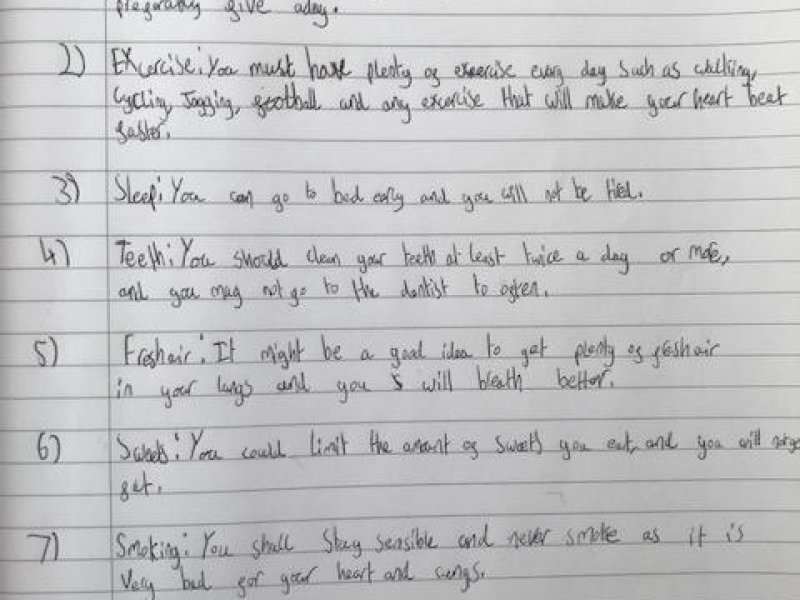 give aday.
2) Excercise: You must have plenty of exercise every day such as walking,
Cycling, Jogging, football and any excercise that will make your heart beat
faster.
3) Sleep: You can go to bed early and you will not be tired.
4) Teeth: You should clean your teeth at least twice a day or more,
and you may not go to the dentist to often.
5) Freshair: It might be a good idea to get plenty of freshair
in your lungs and you will bleath better.
6) Sweets: You could limit the amount of sweets you eat, and you will not get
fat.
7) Smoking: You shall stay sensible and never smoke as it is
Very bad for your heart and lungs.